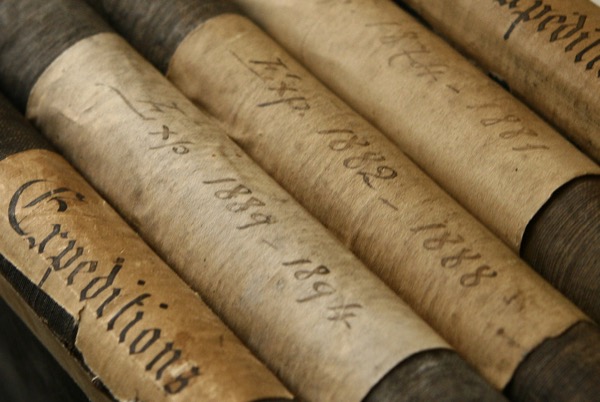 Expeditions
Exp. 1889-1894
Exp. 1882-1888
1874-1881
Expediti